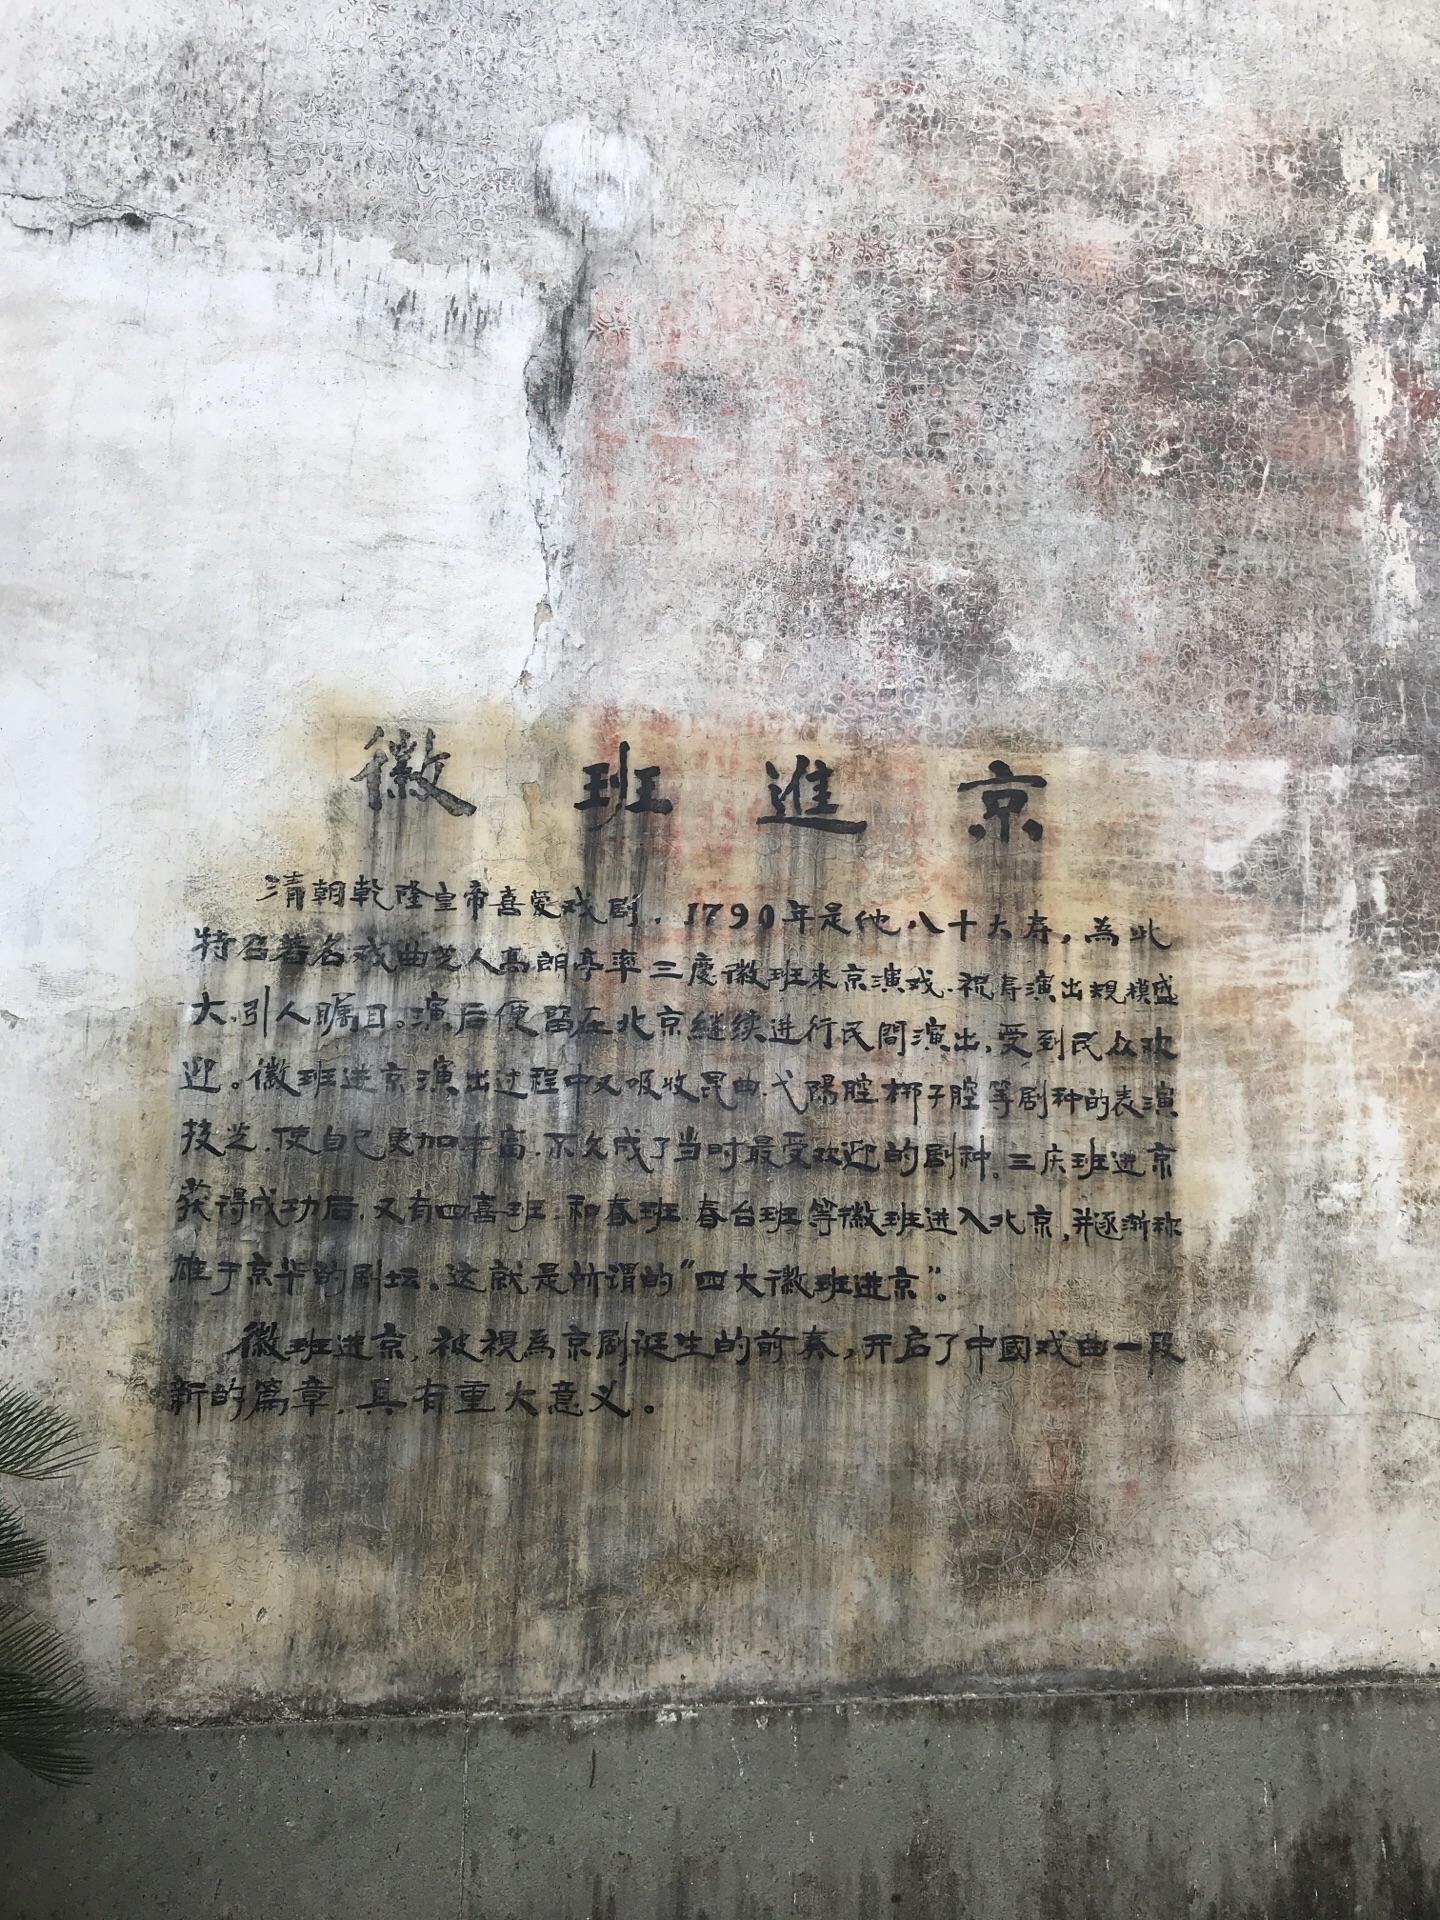 徽班進京
清朝乾隆皇帝喜愛戏剧．1790年是他八十大寿，為此
特召著名戏曲芝人高朗亭率三慶徽班來京演戏．祝寿演出規模盛
大．引人瞩目。演后便留在北京継续进行民間演出，受到民众欢
迎。徽班进京演出过程中又吸收昆曲．弋陽腔．梆子腔等剧种的表演
技芝．使自己更加丰富．不久成了当时最受欢迎的剧种。三庆班进京
获得成功后．又有四喜班．和春班．春台班等徽班进入北京，并逐渐称
雄于京华的剧坛。这就是所谓的“四大徽班进京”。
徽班进京，被視為京剧诞生的前奏，开启了中國戏曲一段
新的篇章．具有重大意义。